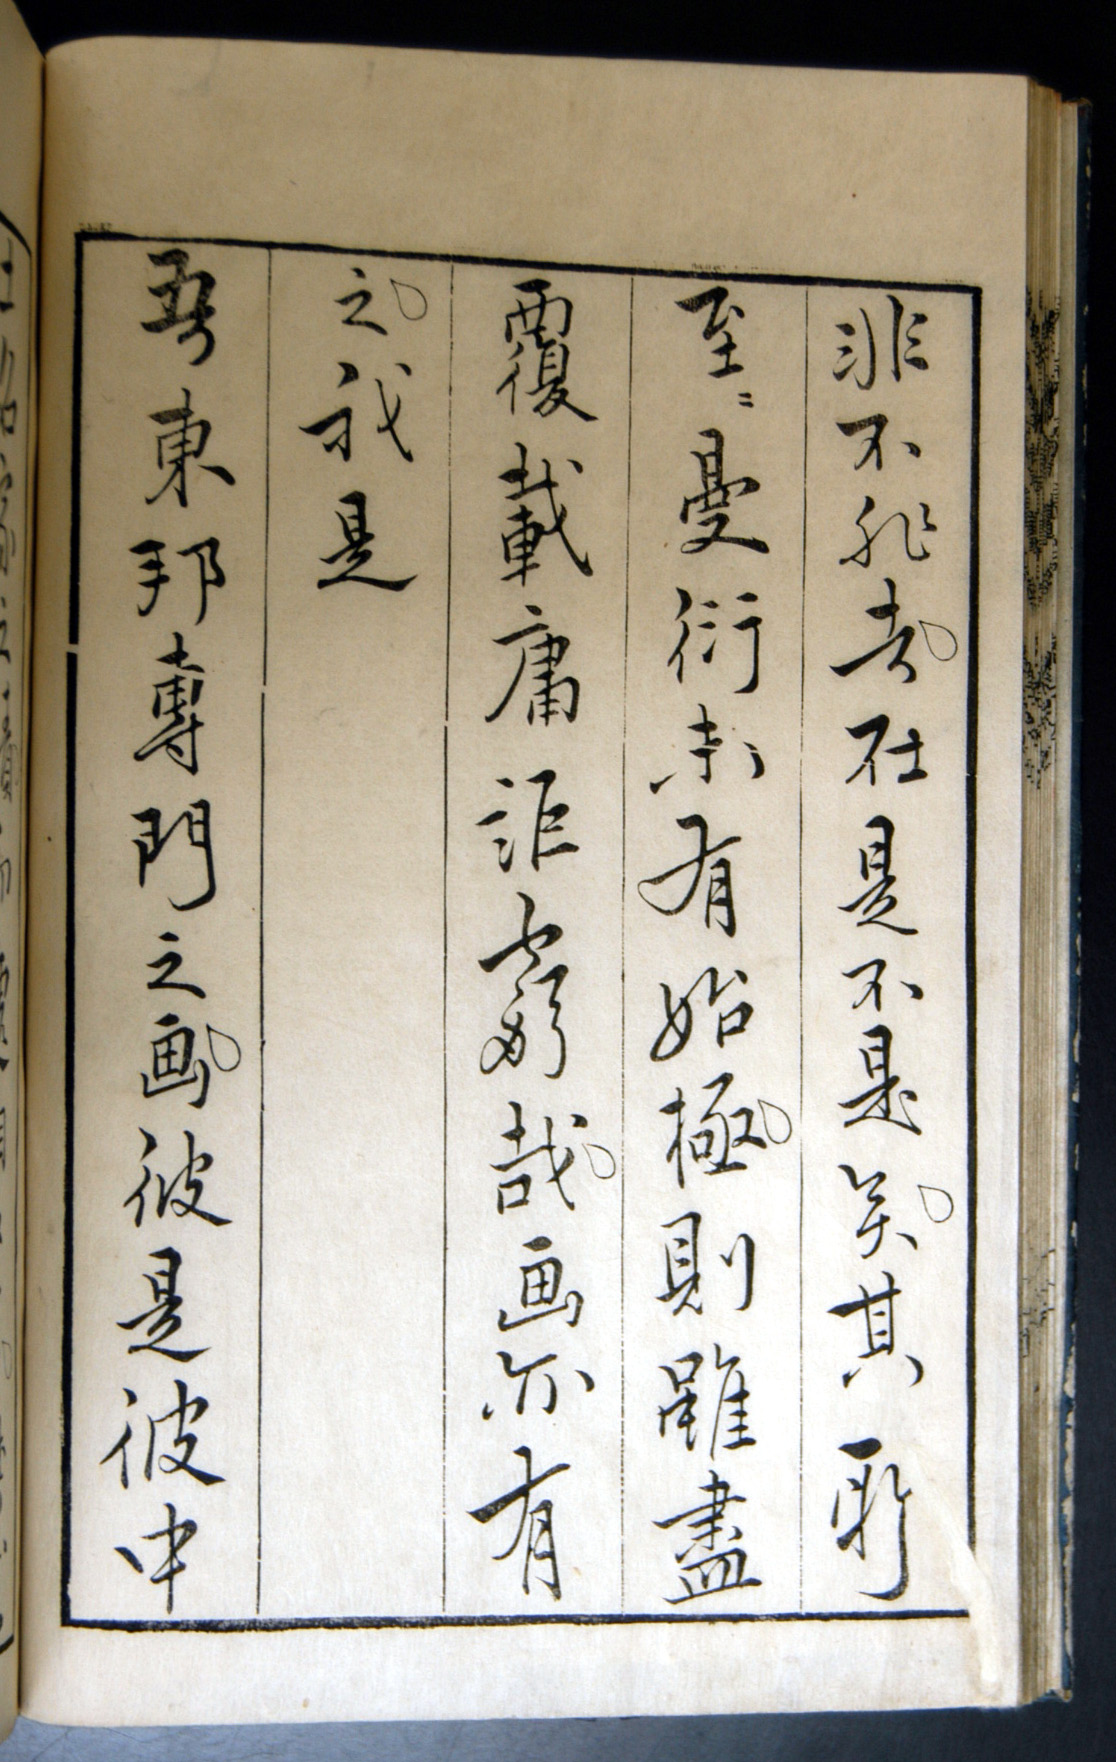 非不非者在是不是矣其所
至〻曼衍未有始極則雖盡
覆載庸詎窮哉画亦有
之我是
吾東邦専門之画彼是彼中